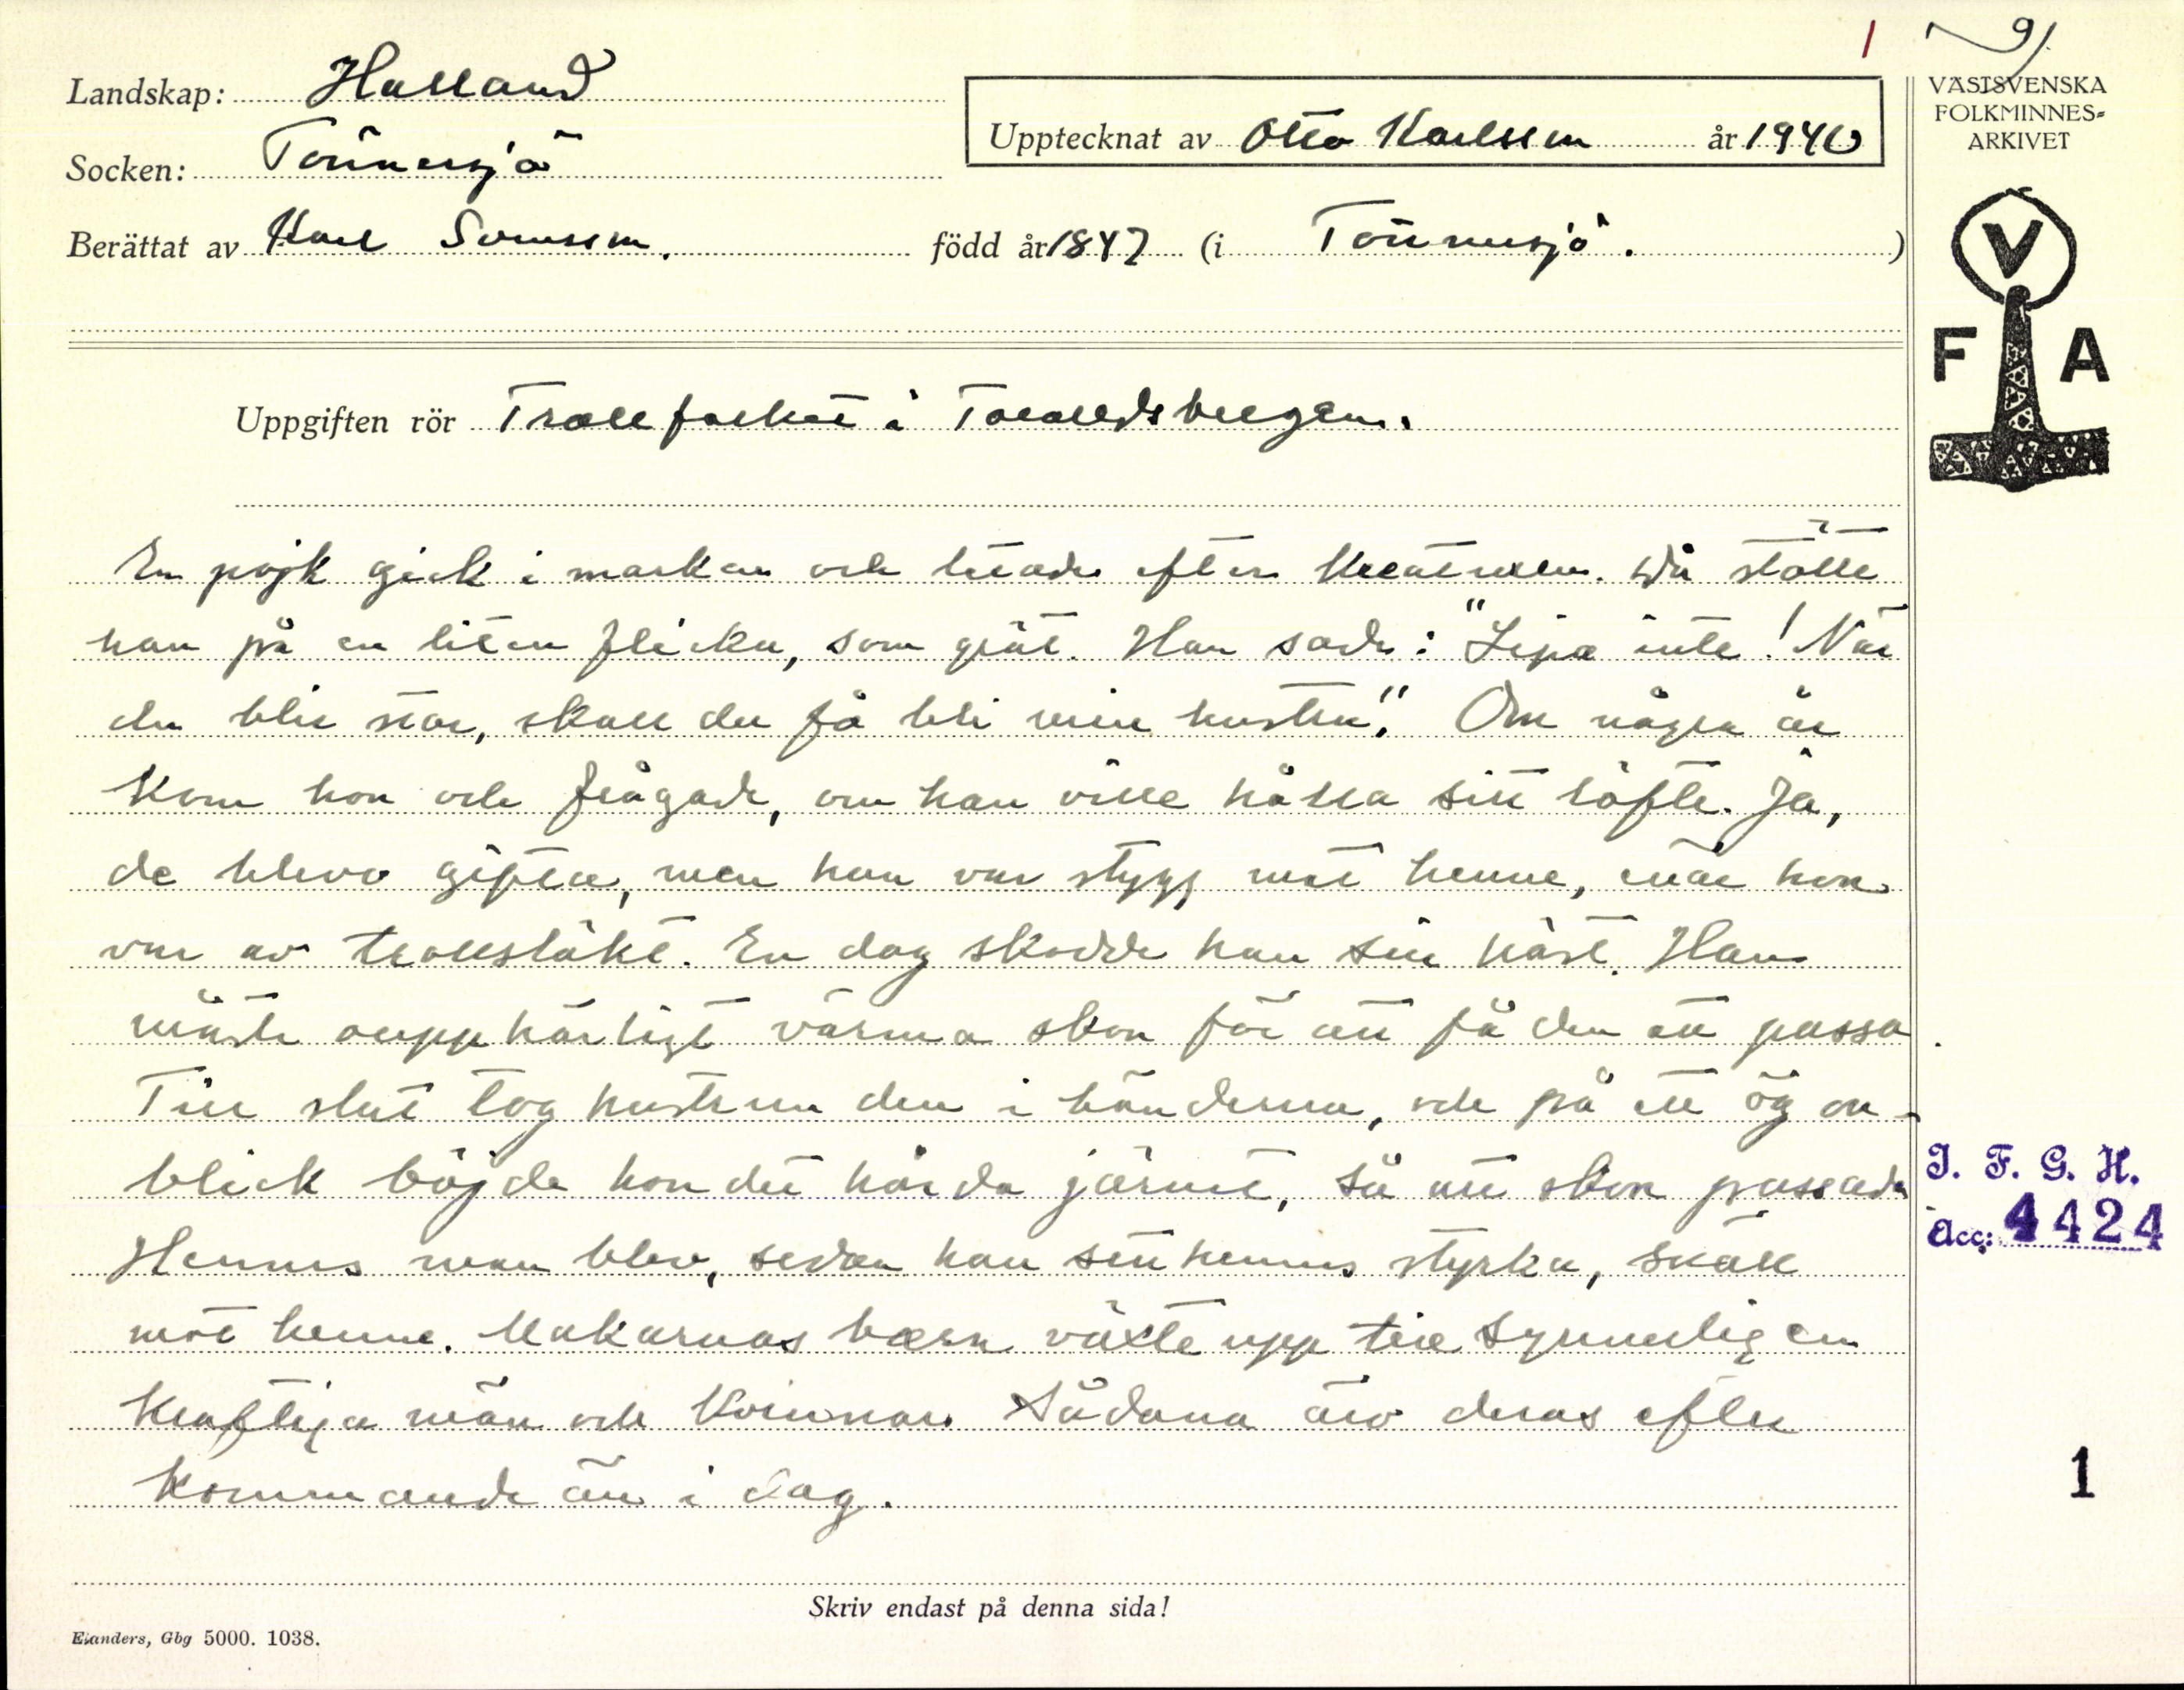 1
91.
Landskap: Halland
VÄSTSVENSKA
FOLKMINNES-
ARKIVET
Upptecknat av Otto Karlsson år 1940
Socken: Tönnersjö
Berättat av Karl Svensson. född år 1847 (i Tönnersjö.)
V
F A
Uppgiften rör Trollfolket i
En pojk gick i marken och letade efter kreaturen. Då stötte
han på en liten flicka, som grät. Han sade: "Lipa inte! När
du blir stor, skall du få bli min hustru." Om några år
kom hon och frågade, om han ville hålla sitt löfte. Ja,
de blevo gifta, men han var stygg mot henne, enär hon
var av trollsläkt. En dag skodde han sin häst. Han
måste oupphörligt värma skon för att få den att passa.
Till slut tog hustrun den i händerna, och på ett ögon-
blick böjde hon det hårda järnet, så att skon passade
Hennes man blev, sedan han sett hennes styrka, snäll
mot henne. Makarnas barn växte upp till synnerligen
kraftiga män och kvinnor. Sådana äro deras efter
kommande än i dag.
I. F. G. H.
Acc: 4424
1
Skriv endast på denna sida!
Elanders, Gbg 5000. 1038.